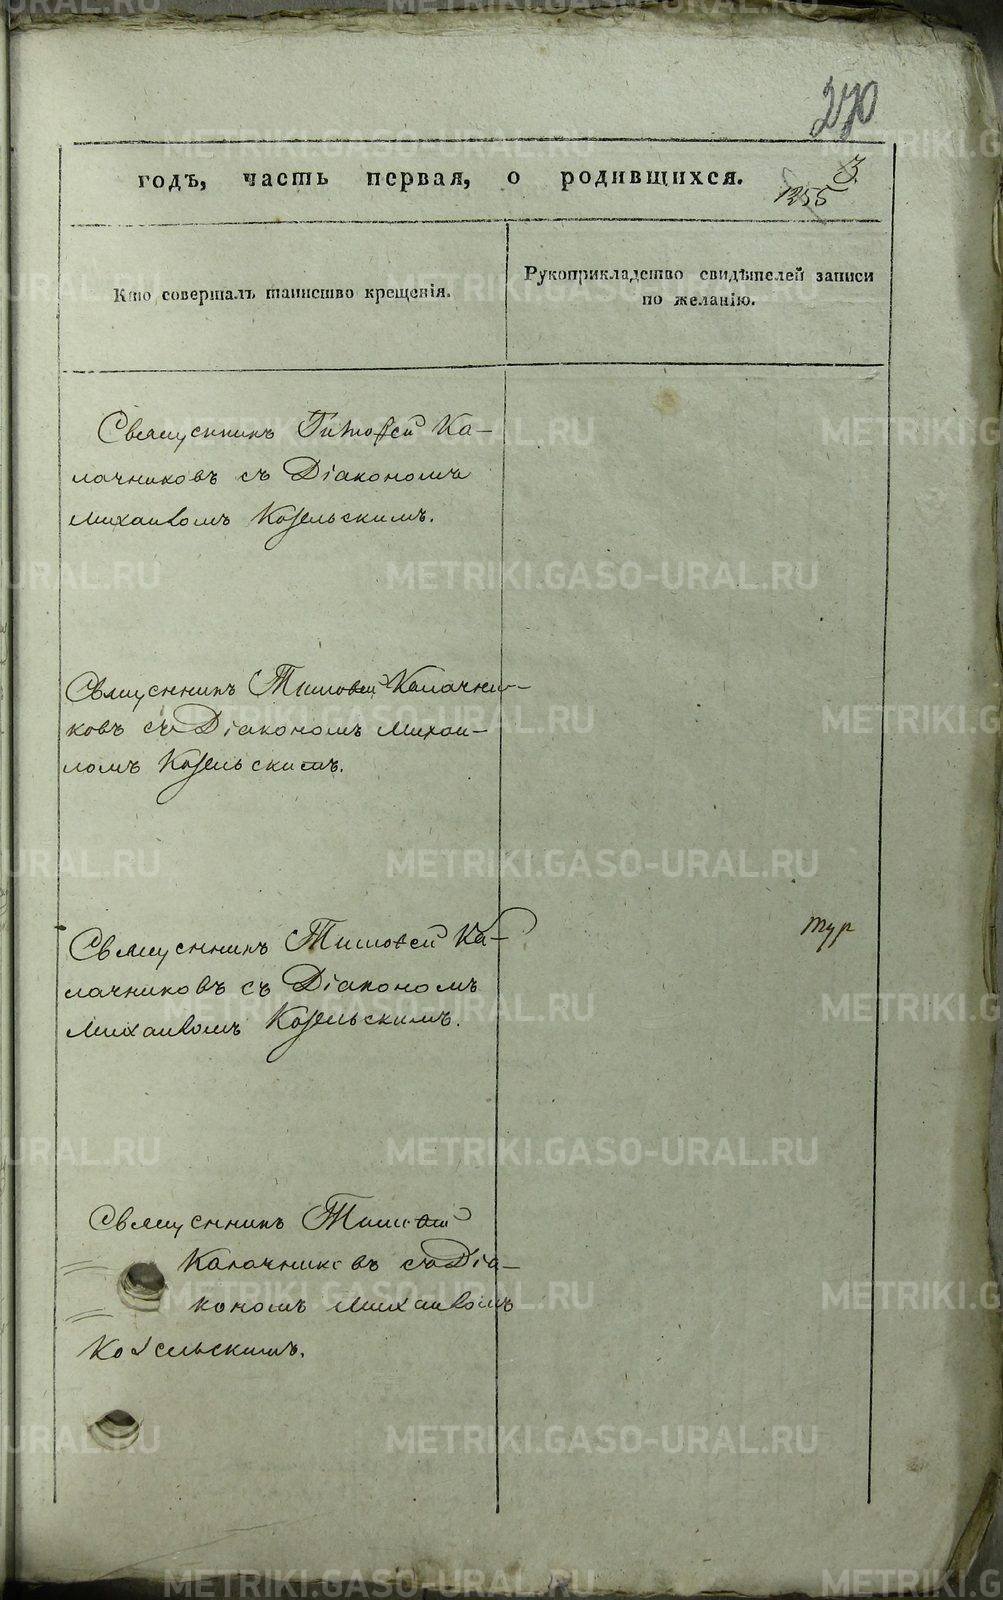 270
годъ, часть первая, о родившихся.
3.
1255
Кто совершалъ таинство крещенія.
Рукоприкладство свидѣтелей записи
по желанію.
Священникъ Тимофей Ка-
лачниковъ съ Діакономъ
Михаиломъ Козельскимъ.
Священникъ Тимовей Калачни-
ковъ съ Діакономъ Михаи-
ломъ Козельскимъ.
Священникъ Тимовей Ка-
лачниковъ съ Діакономъ
Михаиломъ Козельскимъ.
тур
Священникъ Тимовей
Калачниковъ съ Діа-
кономъ Михаиломъ
Козельскимъ.
METRIKI.GASO-URAL.RU